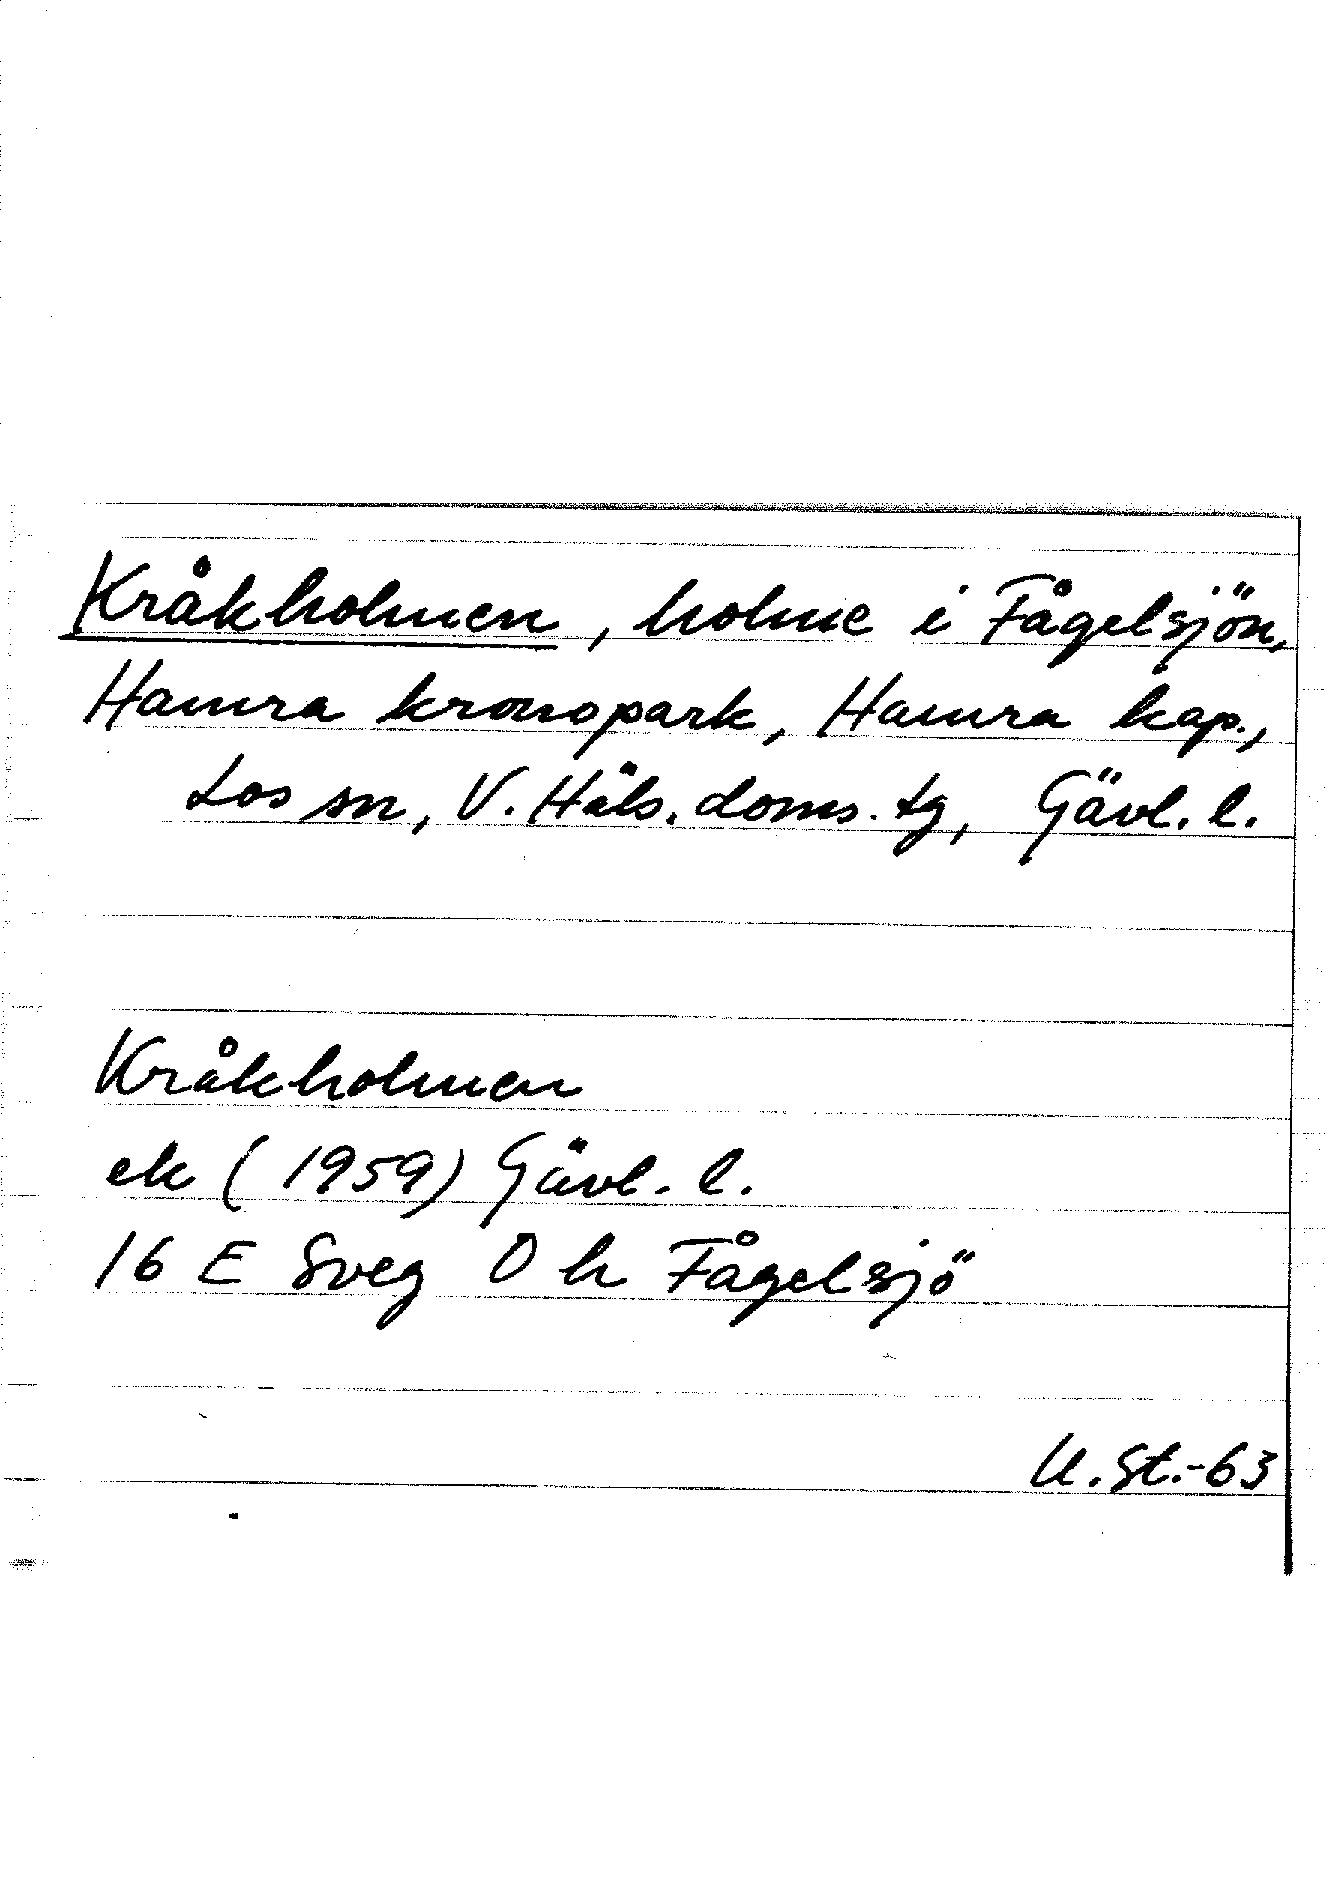 Kråkholmen, holme i Fågelsjön,
Hamra kronopark, Hamra kap.,
Los sn, V. Häls. doms. tg, Gävl. l.
Kråkholmen
ek (1959) Gävl. l.
16 E Sveg O h Fågelsjö
U. St.-63